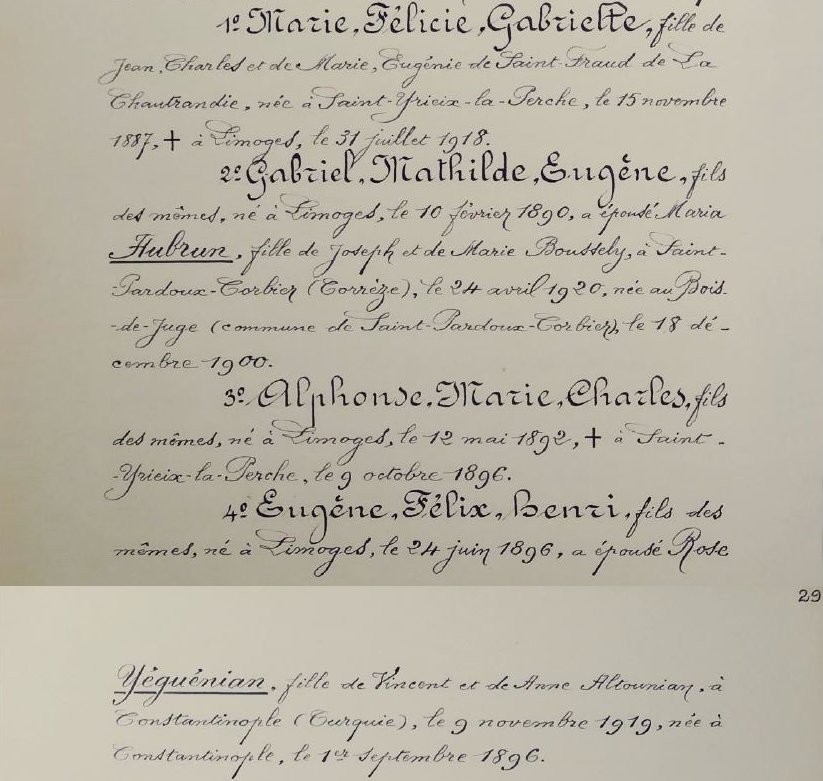 1º Marie, Félicie, Gabrielle, fille de
Jean, Charles et de Marie, Eugénie de Saint-Fraud de La
Chautrandie, née à Saint-Yrieix-la-Perche, le 15 novembre
1887, † à Limoges, le 31 juillet 1918.
2º Gabriel, Mathilde, Eugêne, fils
des mêmes, né à Limoges, le 10 février 1890, a épousé Maria
Aubrun, fille de Joseph et de Marie Boussely, à Saint-
-Pardoux-Corbier (Corrèze), le 24 avril 1920, née au Bois-
-de-Juge (commune de Saint-Pardoux-Corbier), le 18 dé-
cembre 1900.
3º Alphonse, Marie, Charles, fils
des mêmes, né à Limoges, le 12 mai 1892, † à Saint-
-Yrieix-la-Perche, le 9 octobre 1896.
4º Eugêne, Félix, Henri, fils des
mêmes, né à Limoges, le 24 juin 1896, a épousé Rose
29
Yéguénian, fille de Vincent et de Anne Altounian, à
Constantinople (Turquie), le 9 novembre 1919, née à
Constantinople, le 1er septembre 1896.